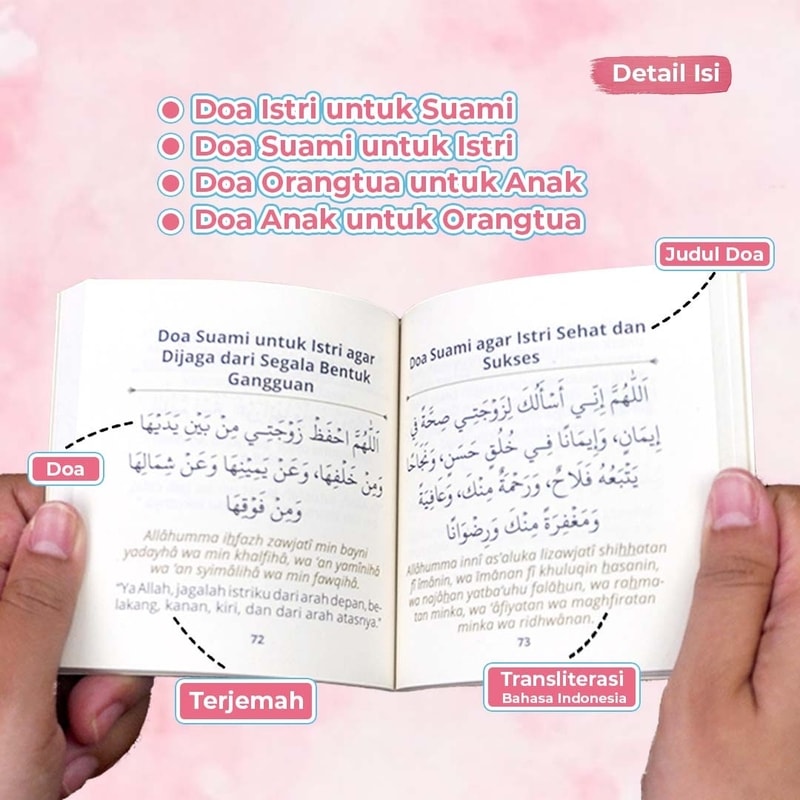 Detail Isi
Doa Istri untuk Suami
Doa Suami untuk Istri
Doa Orangtua untuk Anak
Doa Anak untuk Orangtua
Judul Doa
Doa Suami untuk Istri agar
Dijaga dari Segala Bentuk
Gangguan
اَللّٰهُمَّ احْفَظْ زَوْجَتِي مِنْ بَيْنِ يَدَيْهَا
وَمِنْ خَلْفِهَا، وَعَنْ يَمِيْنِهَا وَعَنْ شِمَالِهَا
وَمِنْ فَوْقِهَا
Allâhumma ihfazh zawjatî min bayni
yadayhâ wa min khalfihâ, wa ‘an yamînihâ
wa ‘an syimâlihâ wa min fawqihâ.
“Ya Allah, jagalah istriku dari arah depan, be-
lakang, kanan, kiri, dan dari arah atasnya.”
72
Doa Suami agar Istri Sehat dan
Sukses
اَللّٰهُمَّ إِنِّي أَسْأَلُكَ لِزَوْجَتِي صِحَّةً فِي
إِيمَانٍ، وَإِيمَانًا فِي خُلُقٍ حَسَنٍ، وَنَجَاحًا
يَتْبَعُهُ فَلَاحٌ، وَرَحْمَةً مِنْكَ، وَعَافِيَةً
وَمَغْفِرَةً مِنْكَ وَرِضْوَانًا
Allâhumma innî as’aluka lizawjatî shihhatan
fî îmânin, wa îmânan fî khuluqin hasanin,
wa najâhan yatba’uhu falâhun, wa rahma-
tan minka, wa ‘âfiyatan wa maghfiratan
minka wa ridhwânan.
73
Doa
Terjemah
Transliterasi
Bahasa Indonesia